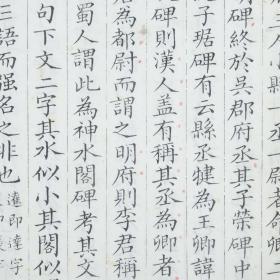 小縣丞尉者
明碑終於吳郡府丞其子榮碑中
子琚碑有云縣丞犍為王卿諱
碑則漢人蓋有稱其丞為卿者
居為都尉而謂之明府則李君稱
蜀人謂此為神水閣碑考其文
句下文二字其水似小其閣似
三語而强名之非也
即達字